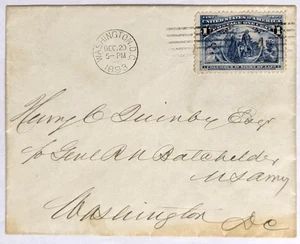 WASHINGTON, D.C.
DEC 29
5-PM
1893
UNITED STATES OF AMERICA
1 1
COLUMBUS IN SIGHT OF LAND
Henry C Quinby Esqr
c/o Genl R N Batchelder
U S Army
Washington DC